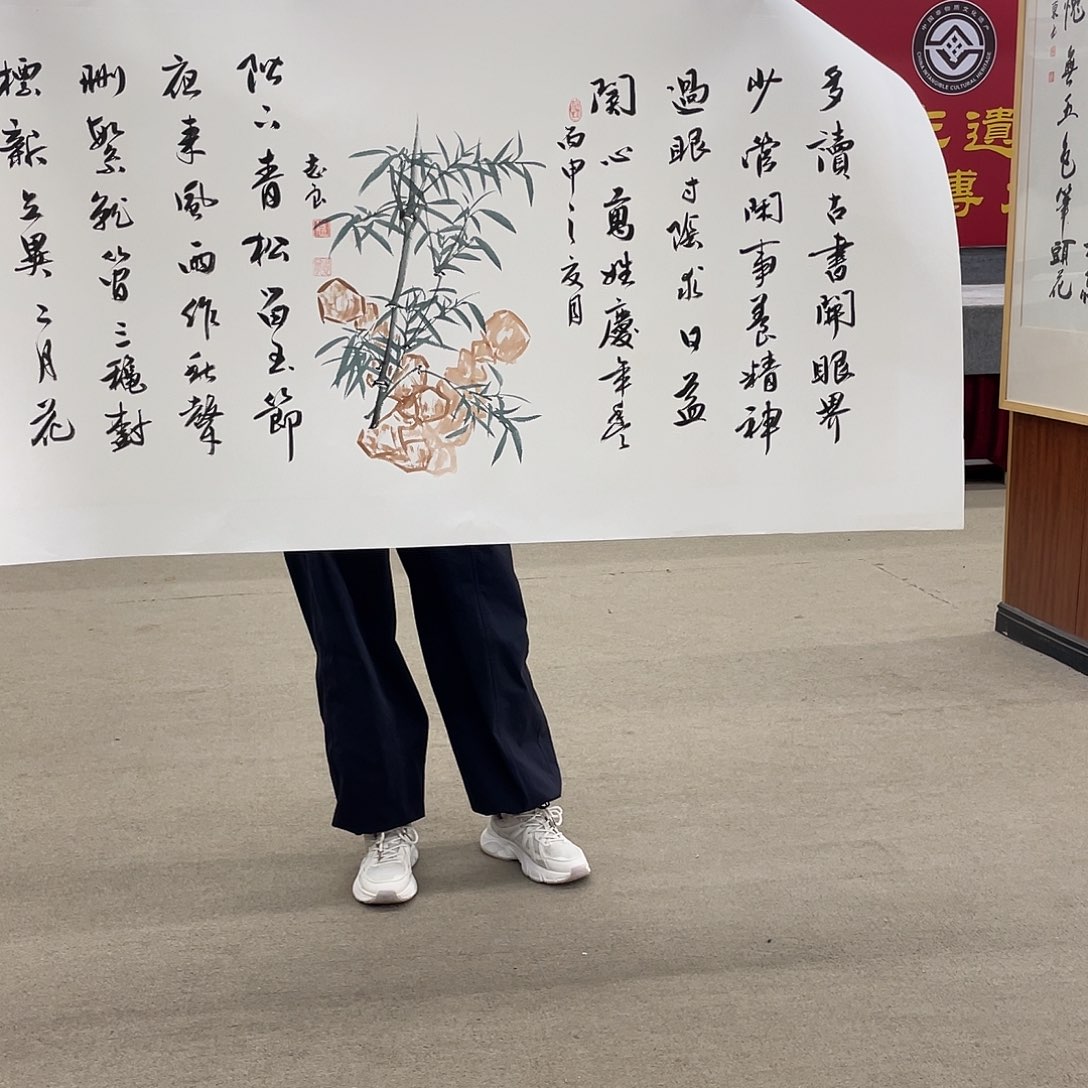 多讀古書開眼界
少管閑事養精神
過眼寸陰求日益
關心萬姓慶年豐
丙申之夏月
階下青松留玉節
夜來風雨作秋聲
刪繁就簡三秋樹
標新立異二月花
中国非物质文化遗产
CHINA INTANGIBLE CULTURAL HERITAGE
遺
傳
愧無五色筆頭花